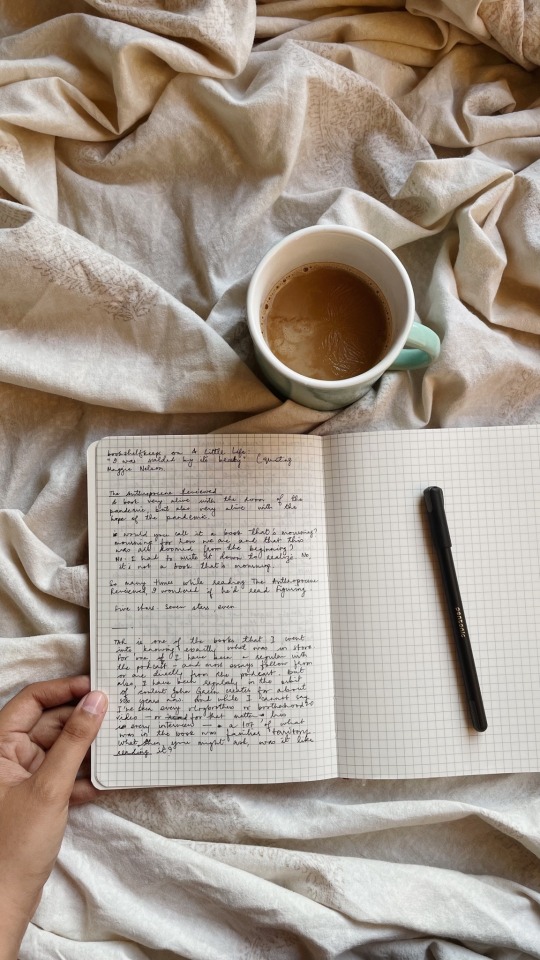 bookshelfkeeps on A Little Life:
"I was scalded by its beauty" (quoting
Maggie Nelson
The Anthropocene Reviewed
A book very alive with the doom of the
pandemic, but also very alive with the
hope of the pandemic.
would you call it a book that's mourning?
mourning for how we are and that this
was all doomed from the beginning?
No. I had to write it down to realize. No,
it's not a book that's mourning.
So many times while reading The Anthropocene
Reviewed, I wondered if he'd read Figuring
Five stars. Seven stars, even
TAR is one of the books that I went
into knowing exactly what was in store.
For one of I have been a regular with
the podcast - and most essays follow from
or are directly from the podcast. But
also, I have been regularly in the orbit
of content John Green creates for about
six years now. And while I cannot say
I've seen every vlogbrothers or brotherhood
video — or for that matter his
every interview — a lot of what
was in the book was familiar territory.
What, then, you might ask, was it like
reading it?